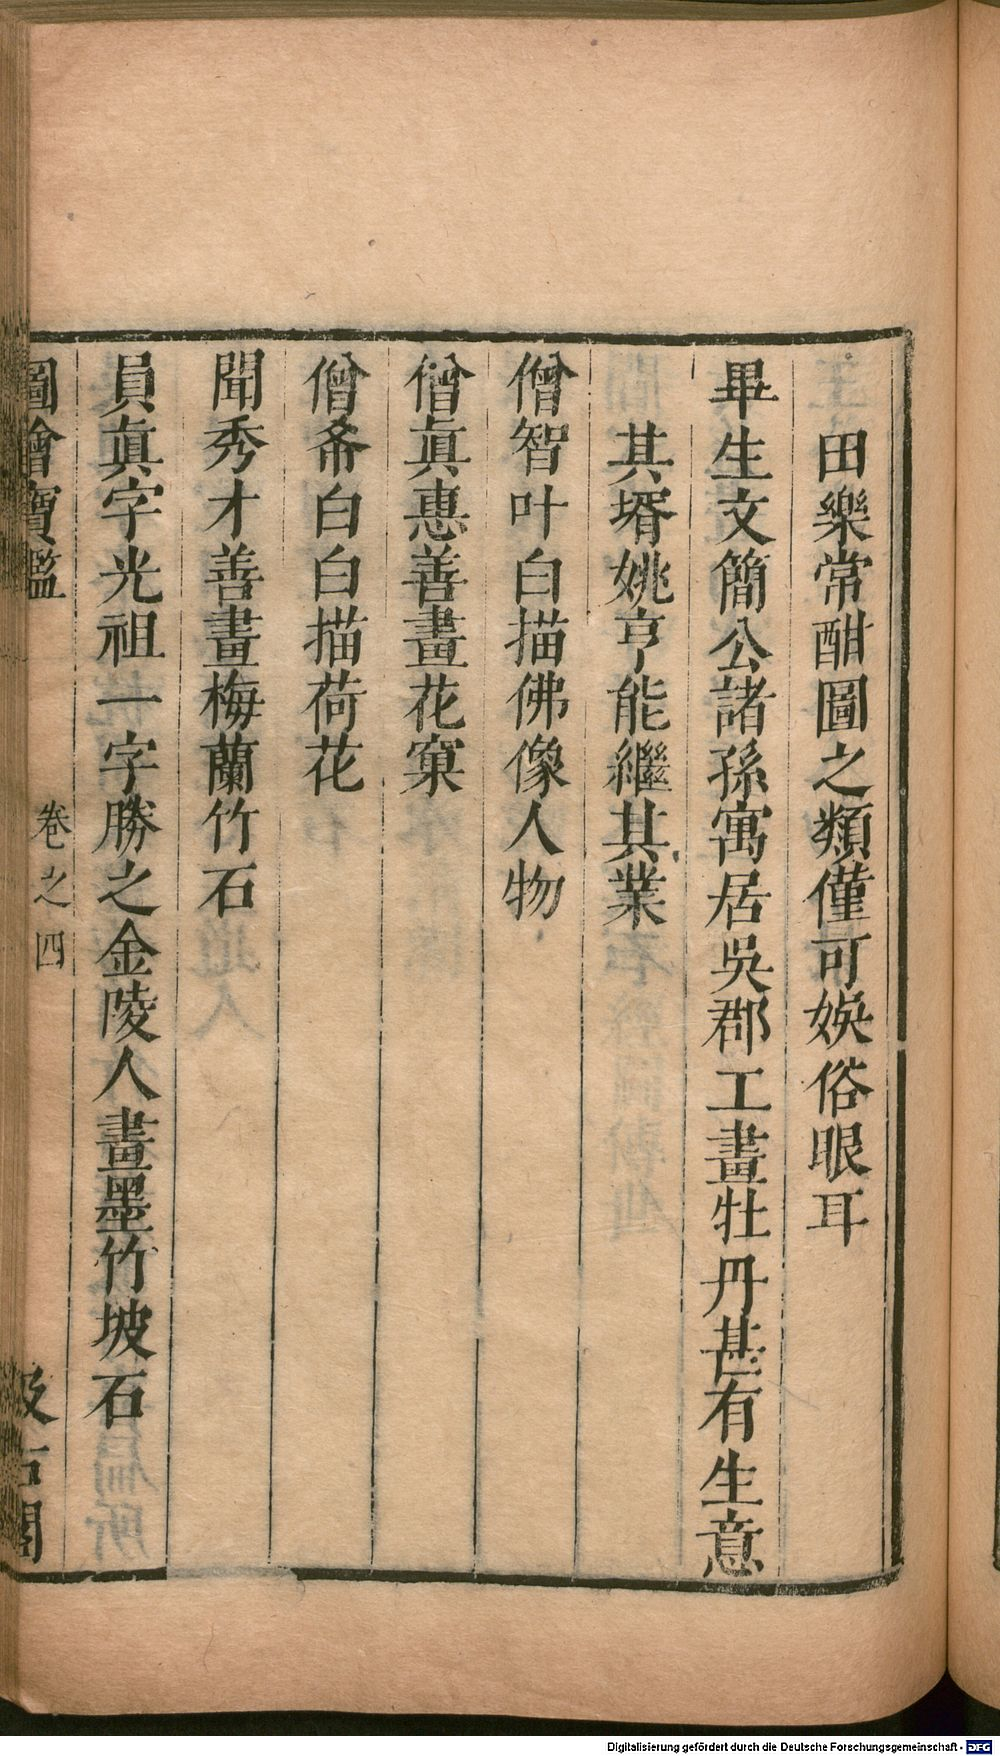 田樂常酣圖之類僅可娛俗眼耳
畢生文簡公諸孫寓居吳郡工畫牡丹甚有生意
其壻姚亨能繼其業
僧智叶白描佛像人物
僧眞惠善畫花菓
僧希白白描荷花
聞秀才善畫梅蘭竹石
員眞字光祖一字勝之金陵人畫墨竹坡石
圖繪寶鑑 卷之四 汲古閣
Digitalisierung gefördert durch die Deutsche Forschungsgemeinschaft - DFG